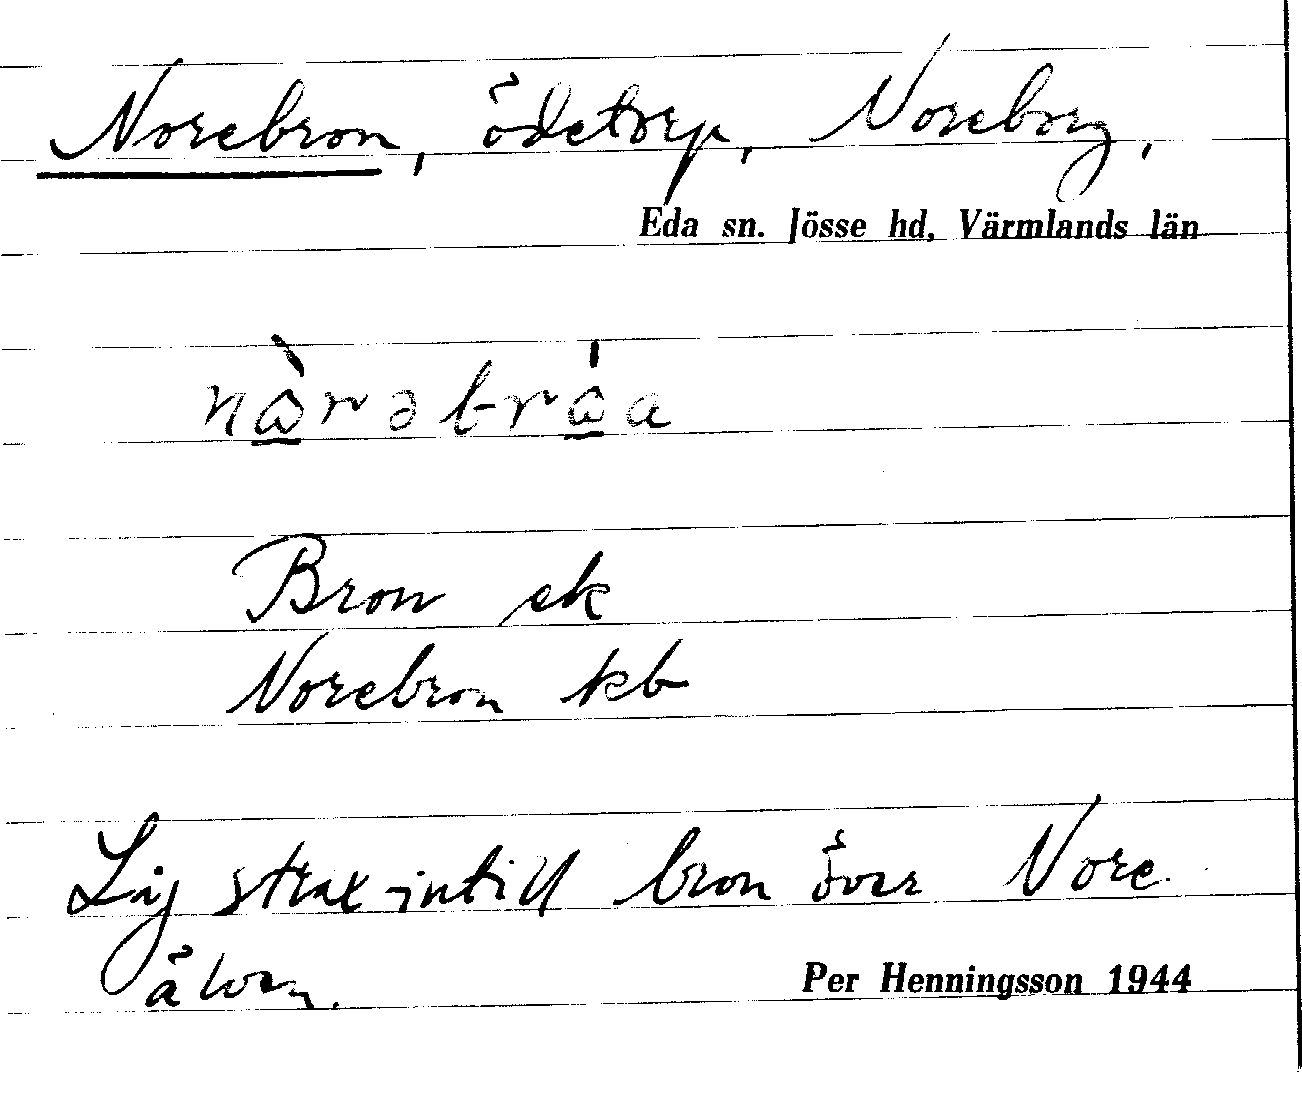 Norebron, ödetorp, Noreborg,
Eda sn. Jösse hd, Värmlands län
nàrəbráa
Bron ek
Norebron kb
Låg strax intill bron över Nore
älven.
Per Henningsson 1944